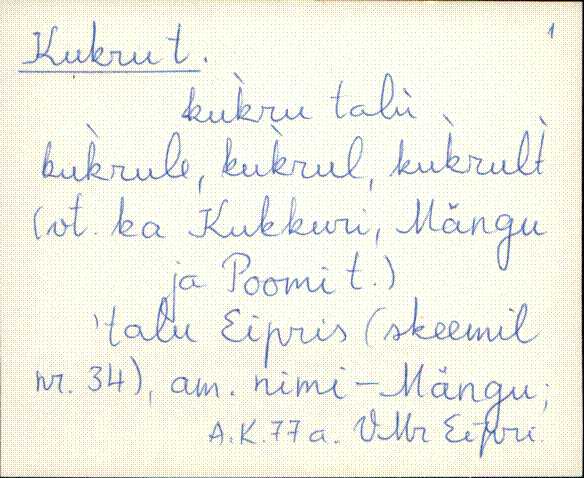 1
Kukru t.
kùkru talù
kùkrule, kùkrul, kùkrulť
(vt. ka Kukkuri, Mängu
ja Poomi t.)
'talu Eipris (skeemil
nr. 34), am. nimi – Mängu;
A.K. 77 a. VMr Eipri.